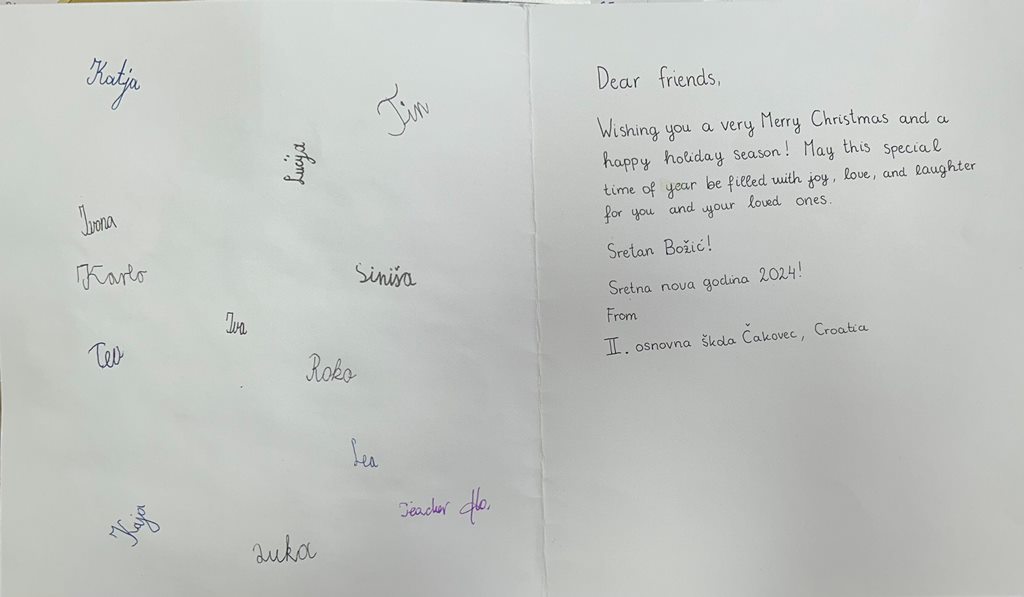 Katja
Tin
Lucija
Ivona
Karlo
Siniša
Iva
Teo
Roko
Lea
Teacher
Kaja
Luka
Dear friends,
Wishing you a very Merry Christmas and a
happy holiday season! May this special
time of year be filled with joy, love, and laughter
for you and your loved ones.
Sretan Božić!
Sretna nova godina 2024!
From
II. osnovna škola Čakovec, Croatia